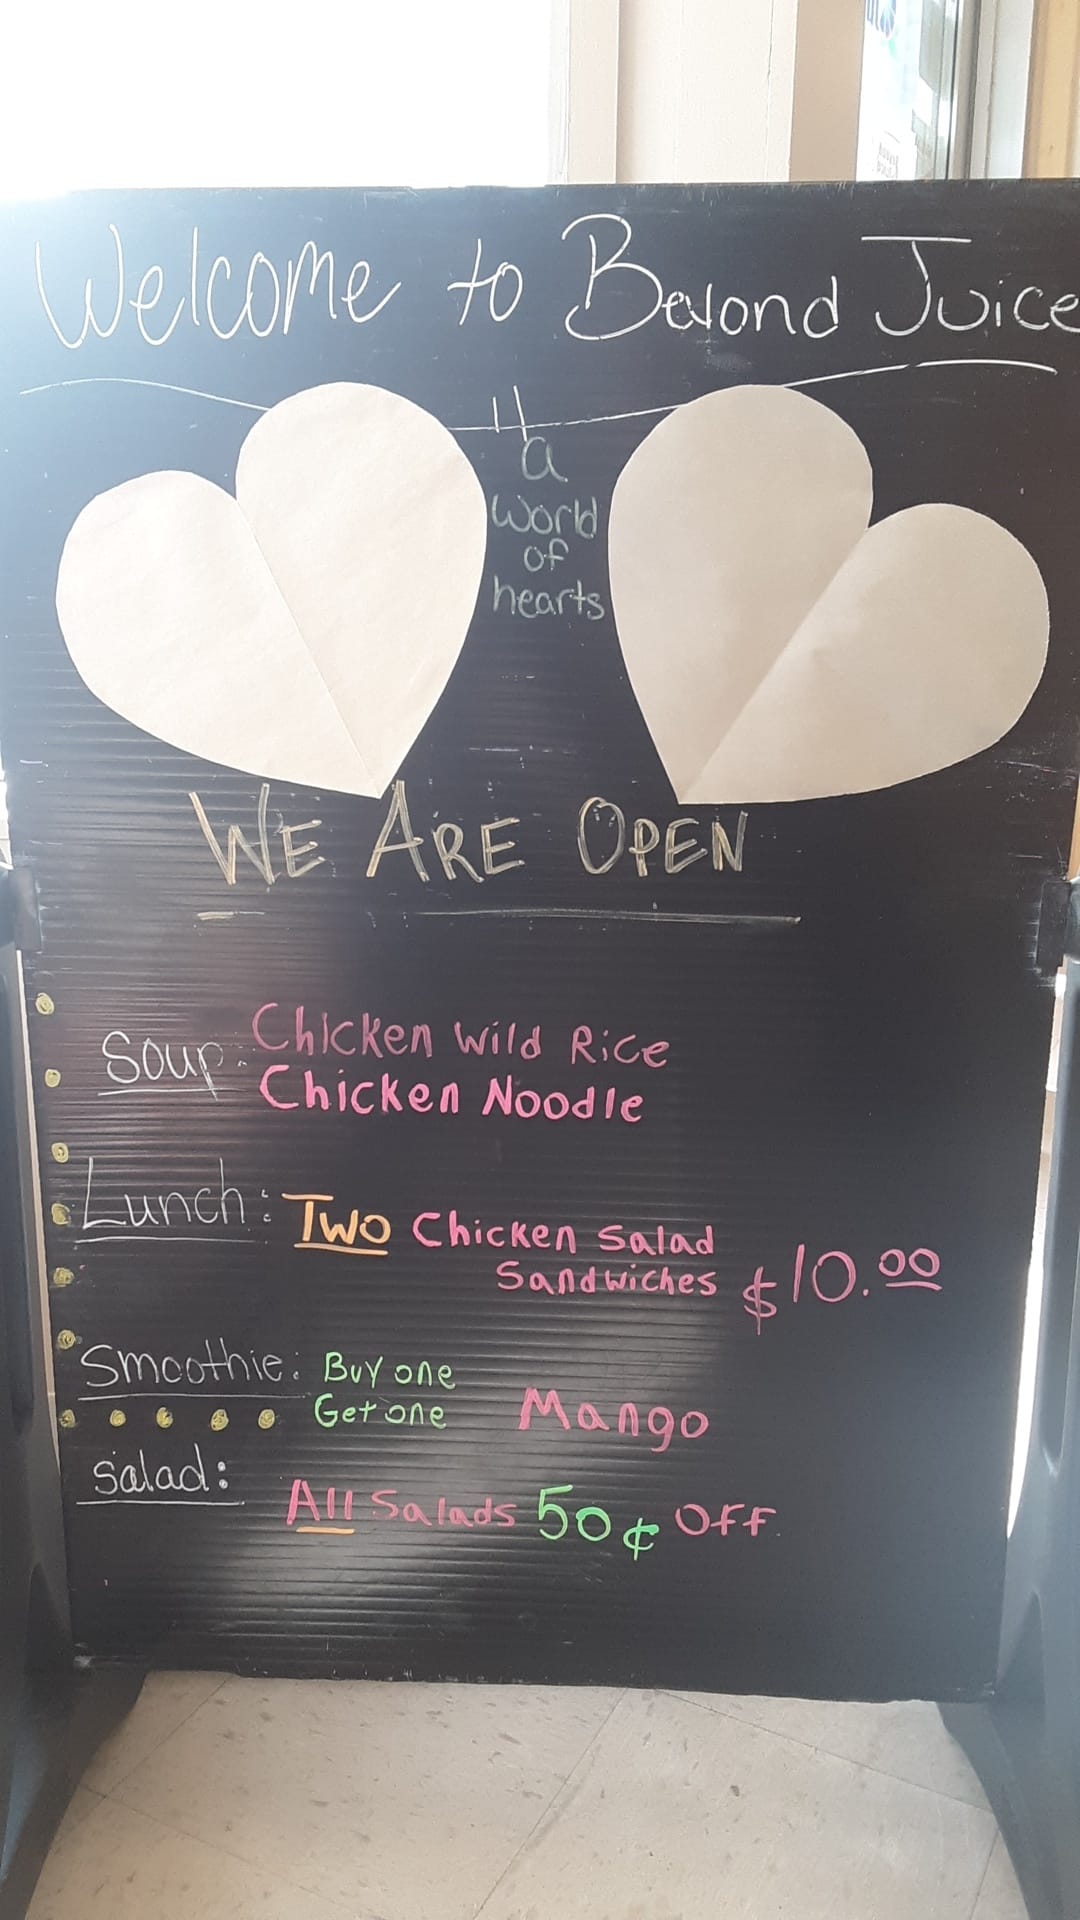 Welcome to Beyond Juice
a
world
of
hearts
WE ARE OPEN
Soup: Chicken Wild Rice
Chicken Noodle
Lunch: Two Chicken Salad
Sandwiches $10.00
Smoothie: Buy one
Get one Mango
Salad:
All Salads 50¢ Off